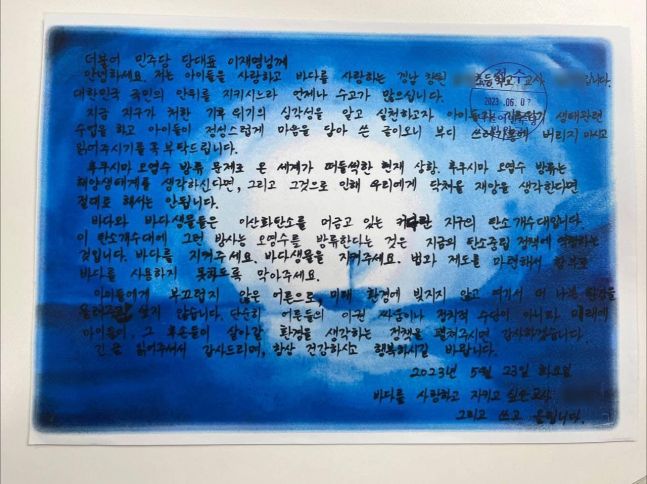 더불어 민주당 당대표 이재명님께
안녕하세요. 저는 아이들을 사랑하고 바다를 사랑하는 경남 창원 초등학교 교사 입니다.
대한민국 국민의 안위를 지키시느라 언제나 수고가 많으십니다.
지금 지구가 처한 기후위기의 심각성을 알고 실천하고자 아이들과 생태관련
수업을 하고 아이들이 정성스럽게 마음을 담아 쓴 글이오니 부디 쓰레기통에 버리지 마시고
읽어주시기를 꼭 부탁드립니다.
후쿠시마 오염수 방류 문제로 온 세계가 떠들썩한 현재 상황. 후쿠시마 오염수 방류는
해양생태계를 생각하신다면, 그리고 그것으로 인해 우리에게 닥쳐올 재앙을 생각한다면
절대로 해서는 안됩니다.
바다와 바다생물들은 이산화탄소를 머금고 있는 커다란 지구의 탄소 개수대입니다.
이 탄소개수대에 그런 방사능 오염수를 방류한다는 것은 지금의 탄소중립 정책에 역행하는
것입니다. 바다를 지켜주세요. 바다생물을 지켜주세요. 법과 제도를 마련해서 함부로
바다를 사용하지 못하도록 막아주세요.
아이들에게 부끄럽지 않은 어른으로, 미래 환경에 빚지지 않고 여기서 더 나빠진 환경을
물려주고 싶지 않습니다. 단순히 어른들의 이권 싸움이나 정치적 수단이 아니라 미래에
아이들이, 그 후손들이 살아갈 환경을 생각하는 정책을 펼쳐주시면 감사하겠습니다.
긴 글 읽어주셔서 감사드리며, 항상 건강하시고 행복하시길 바랍니다.
2023년 5월 23일 화요일
바다를 사랑하고 지키고 싶은 교사
그리고 쓰고 올립니다.
2023. 06. 07